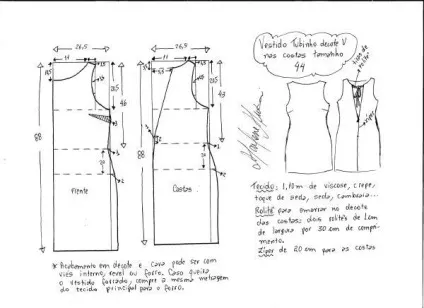 Vestido Tubinho decote V
nas costas tamanho
44
26,5
26,5
11
11
46
43
88
88
20
20
Frente
Costas
zíper
Tecido: 1,10 m de viscose, crepe,
toque de seda, seda, cambraia...
Rolitê para amarrar no decote
das costas: dois rolitês de 1cm
de largura por 30 cm de compri-
mento.
Zíper de 20 cm para as costas
* Acabamento em decote e cava pode ser com
viés interno, revel ou forro. Caso queira
o vestido forrado, compre a mesma metragem
do tecido principal para o forro.